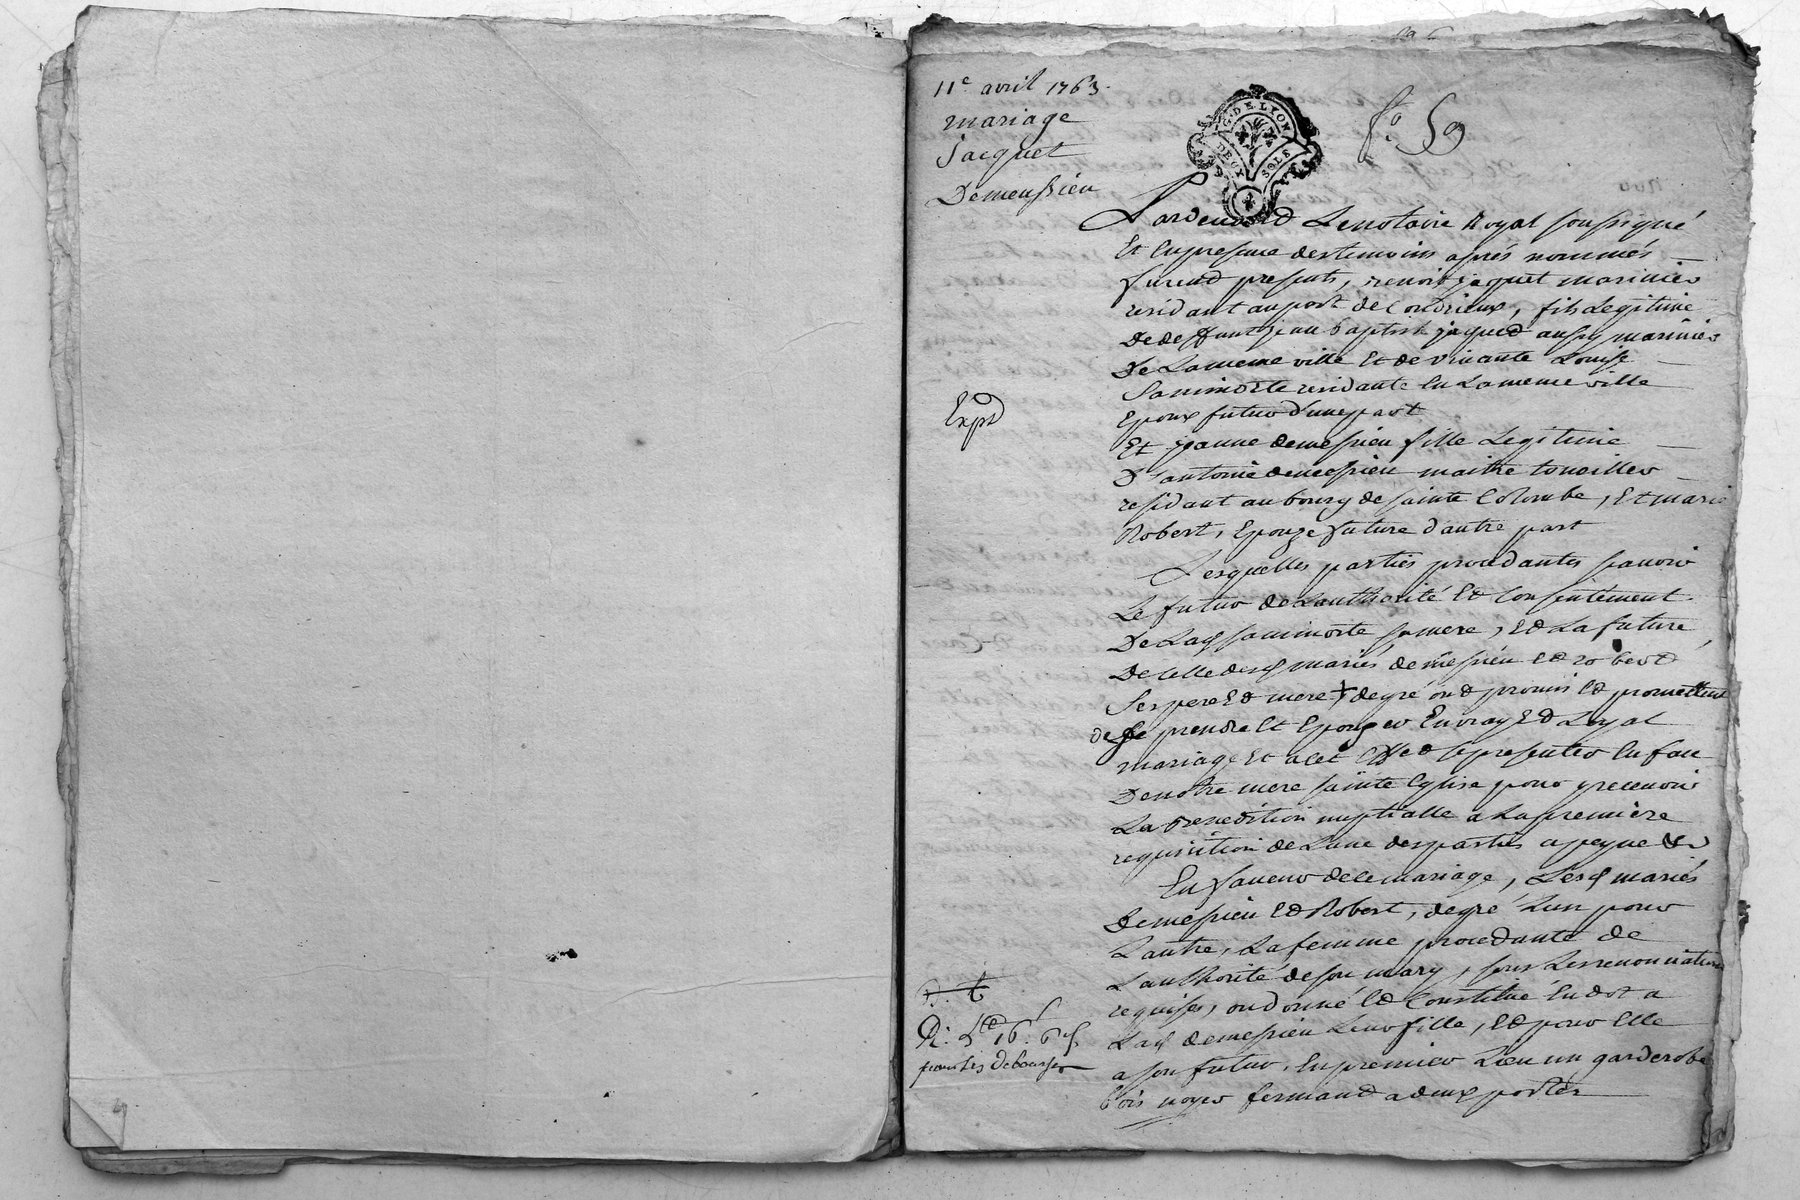 11e avril 1763.
mariage
Jacquet
Demeussieu
G. DE LYON
DEUX SOLS
fo 59
Pardevand Le notaire Royal soussigné
Et en presence des temoins aprés nommés
furend presents, benoit jaquet marinier
residant au port de Condrieux, fils Legitime
De deffunt jean baptiste jaqued aussy marinier
De La meme ville Et de vivante Louise
Sanimorte residante En La meme ville
Epoux futur d'une part
Et jeanne demessieu fille Legitime
D'antoine demessieu maitre
residant au bourg de sainte Colombe, Et marie
Robert, Epouze future d'autre part
Lesquelles parties procedantes scavoir
Le futur de L'authorité Ed Consentement
De Lad sanimorte sa mere, Ed La future
De Celle desd mariés demessieu Ed robert
Ses pere Ed mere + de gré ond promis Ed promettent
de se prendre Et Epouser En vray Ed Loyal
mariage Et a cet Effed se presenter En face
De notre mere sainte Eglise pour y recevoir
La benediction nuptialle a La premiere
requisition de L'une des parties a peyne &c
En faveur de ce mariage, Lesd mariés
Demessieu Ed Robert, de gré L'un pour
L'autre, La femme procedante de
L'authorité de son mary, sous Les renonciations
requises, on donné Ed Constitué En dot a
Lad demessieu Leur fille, Ed pour Elle
a son futur, En premier Lieu un garderobe
bois noyer fermand a deux portes
Expd